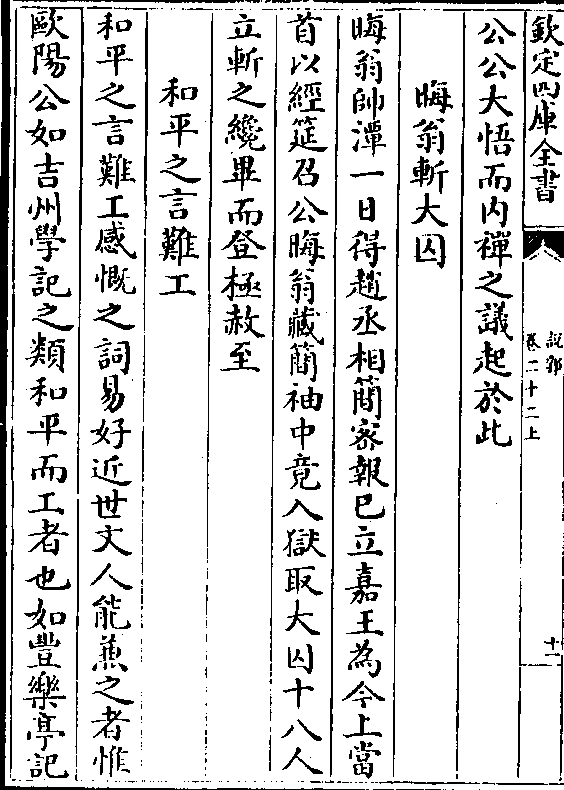 欽定四庫全書
說郛
卷二十二上
十一
公公大悟而内禪之議起於此
晦翁斬大囚
晦翁帥潭一日得趙丞相簡宻報已立嘉王為今上當
首以經筵召公晦翁藏簡袖中竟入獄取大囚十八人
立斬之纔畢而登極赦至
和平之言難工
和平之言難工感慨之詞易好近世文人能兼之者惟
歐陽公如吉州學記之類和平而工者也如豐樂亭記